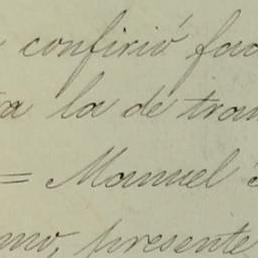 confirió fac
la de tra
= Manuel
mo, presente